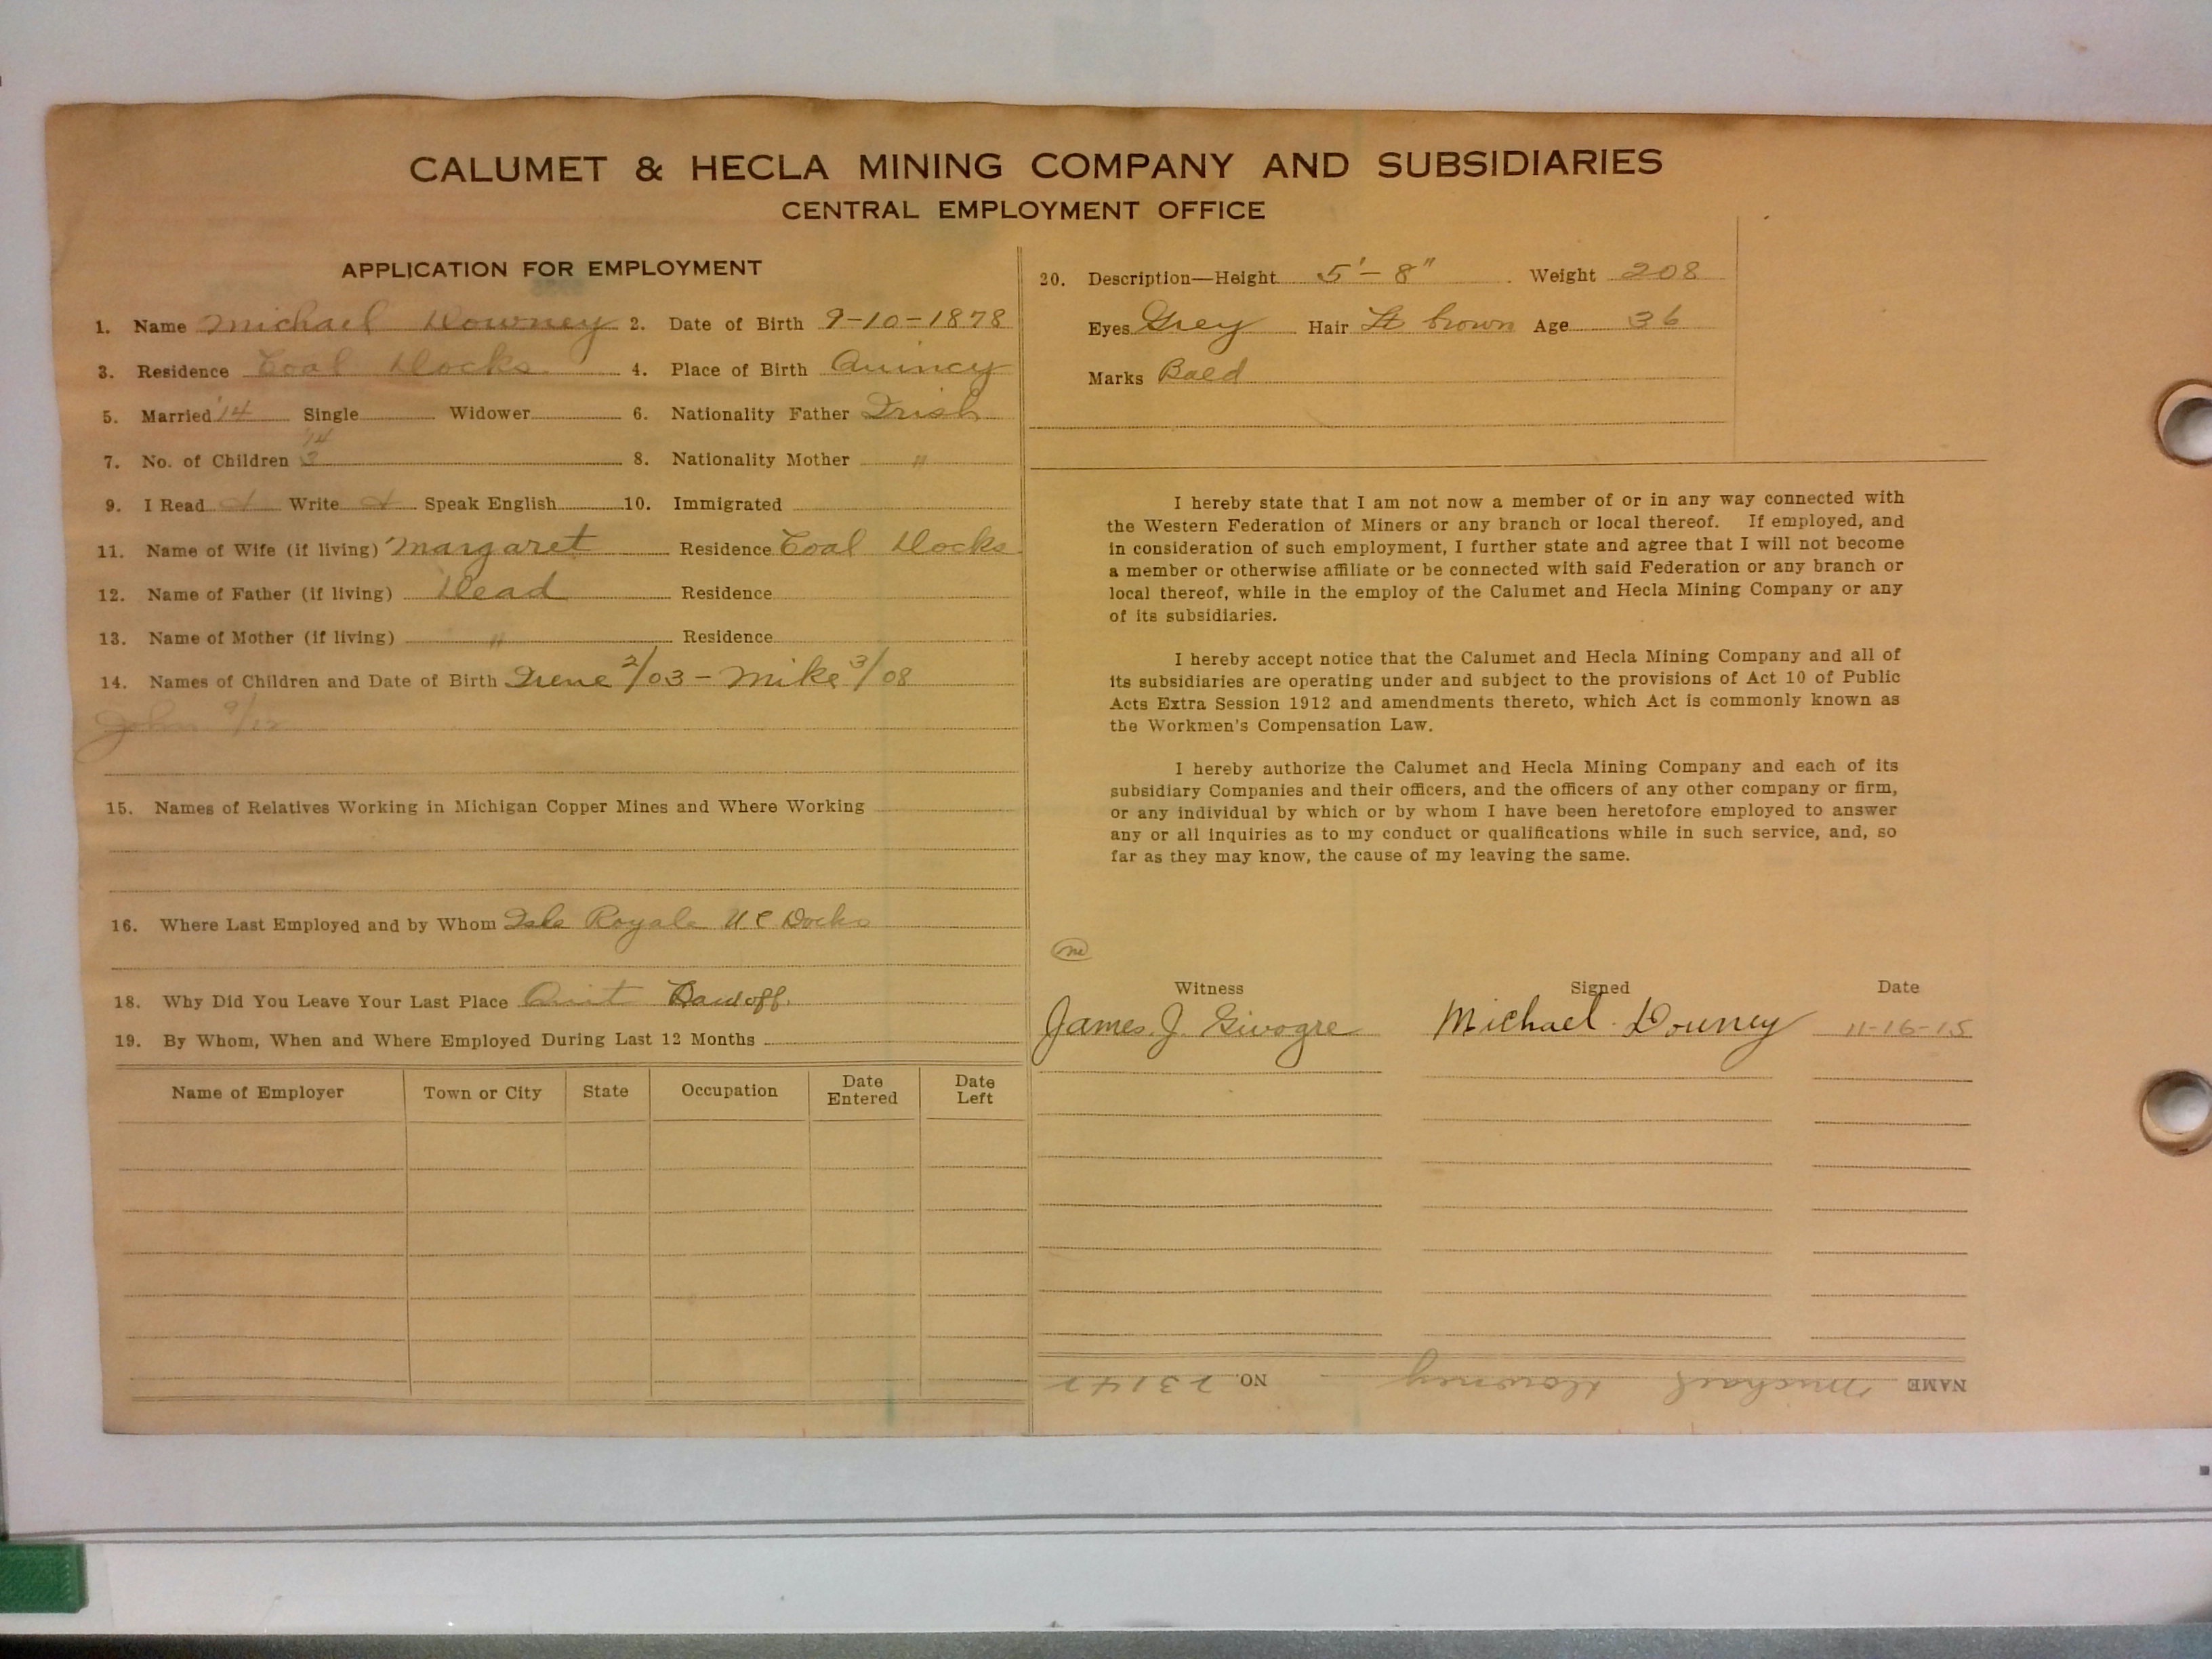 CALUMET & HECLA MINING COMPANY AND SUBSIDIARIES
CENTRAL EMPLOYMENT OFFICE
APPLICATION FOR EMPLOYMENT
1. Name Michael Downey 2. Date of Birth 9-10-1878
3. Residence Coal Docks 4. Place of Birth Quincy
5. Married '14 Single Widower 6. Nationality Father Irish
'14
7. No. of Children 3 8. Nationality Mother "
9. I Read Write Speak English 10. Immigrated
11. Name of Wife (if living) Margaret Residence Coal Docks
12. Name of Father (if living) Dead Residence
13. Name of Mother (if living) " Residence
14. Names of Children and Date of Birth Irene 2/03 - Mike 3/08
John 9/12
15. Names of Relatives Working in Michigan Copper Mines and Where Working
16. Where Last Employed and by Whom Isle Royale Docks
18. Why Did You Leave Your Last Place Quit
19. By Whom, When and Where Employed During Last 12 Months
Name of Employer Town or City State Occupation Date Entered Date Left
20. Description—Height 5'-8" Weight 208
Eyes Grey Hair Lt brown Age 36
Marks Bald
I hereby state that I am not now a member of or in any way connected with
the Western Federation of Miners or any branch or local thereof. If employed, and
in consideration of such employment, I further state and agree that I will not become
a member or otherwise affiliate or be connected with said Federation or any branch or
local thereof, while in the employ of the Calumet and Hecla Mining Company or any
of its subsidiaries.
I hereby accept notice that the Calumet and Hecla Mining Company and all of
its subsidiaries are operating under and subject to the provisions of Act 10 of Public
Acts Extra Session 1912 and amendments thereto, which Act is commonly known as
the Workmen's Compensation Law.
I hereby authorize the Calumet and Hecla Mining Company and each of its
subsidiary Companies and their officers, and the officers of any other company or firm,
or any individual by which or by whom I have been heretofore employed to answer
any or all inquiries as to my conduct or qualifications while in such service, and, so
far as they may know, the cause of my leaving the same.
Witness Signed Date
James J. Givogre Michael Downey 11-16-15
NAME Michael Downey NO. 23142